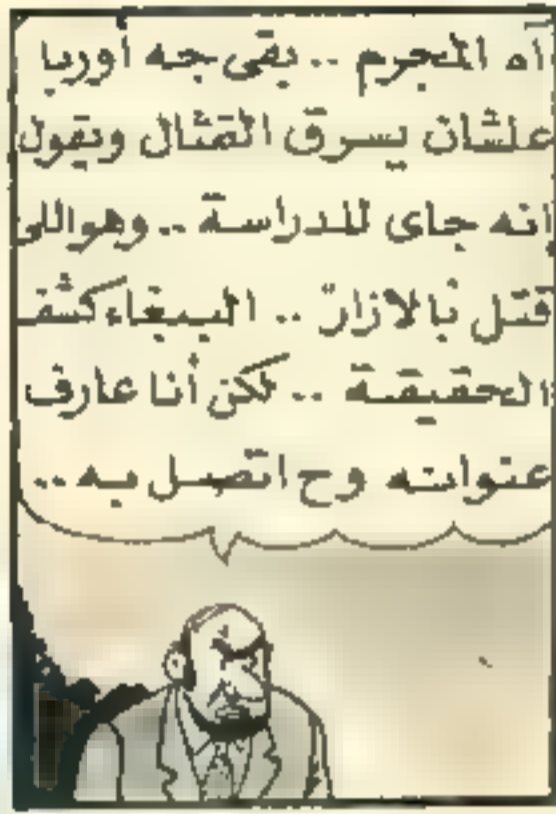 آه المجرم .. بقى جه أوربا
علشان يسرق التمثال ويقول
إنه جاى للدراسة .. وهو اللى
قتل بالازار .. الببغاء كشف
الحقيقة .. لكن أنا عارف
عنوانه وح اتصل به ..